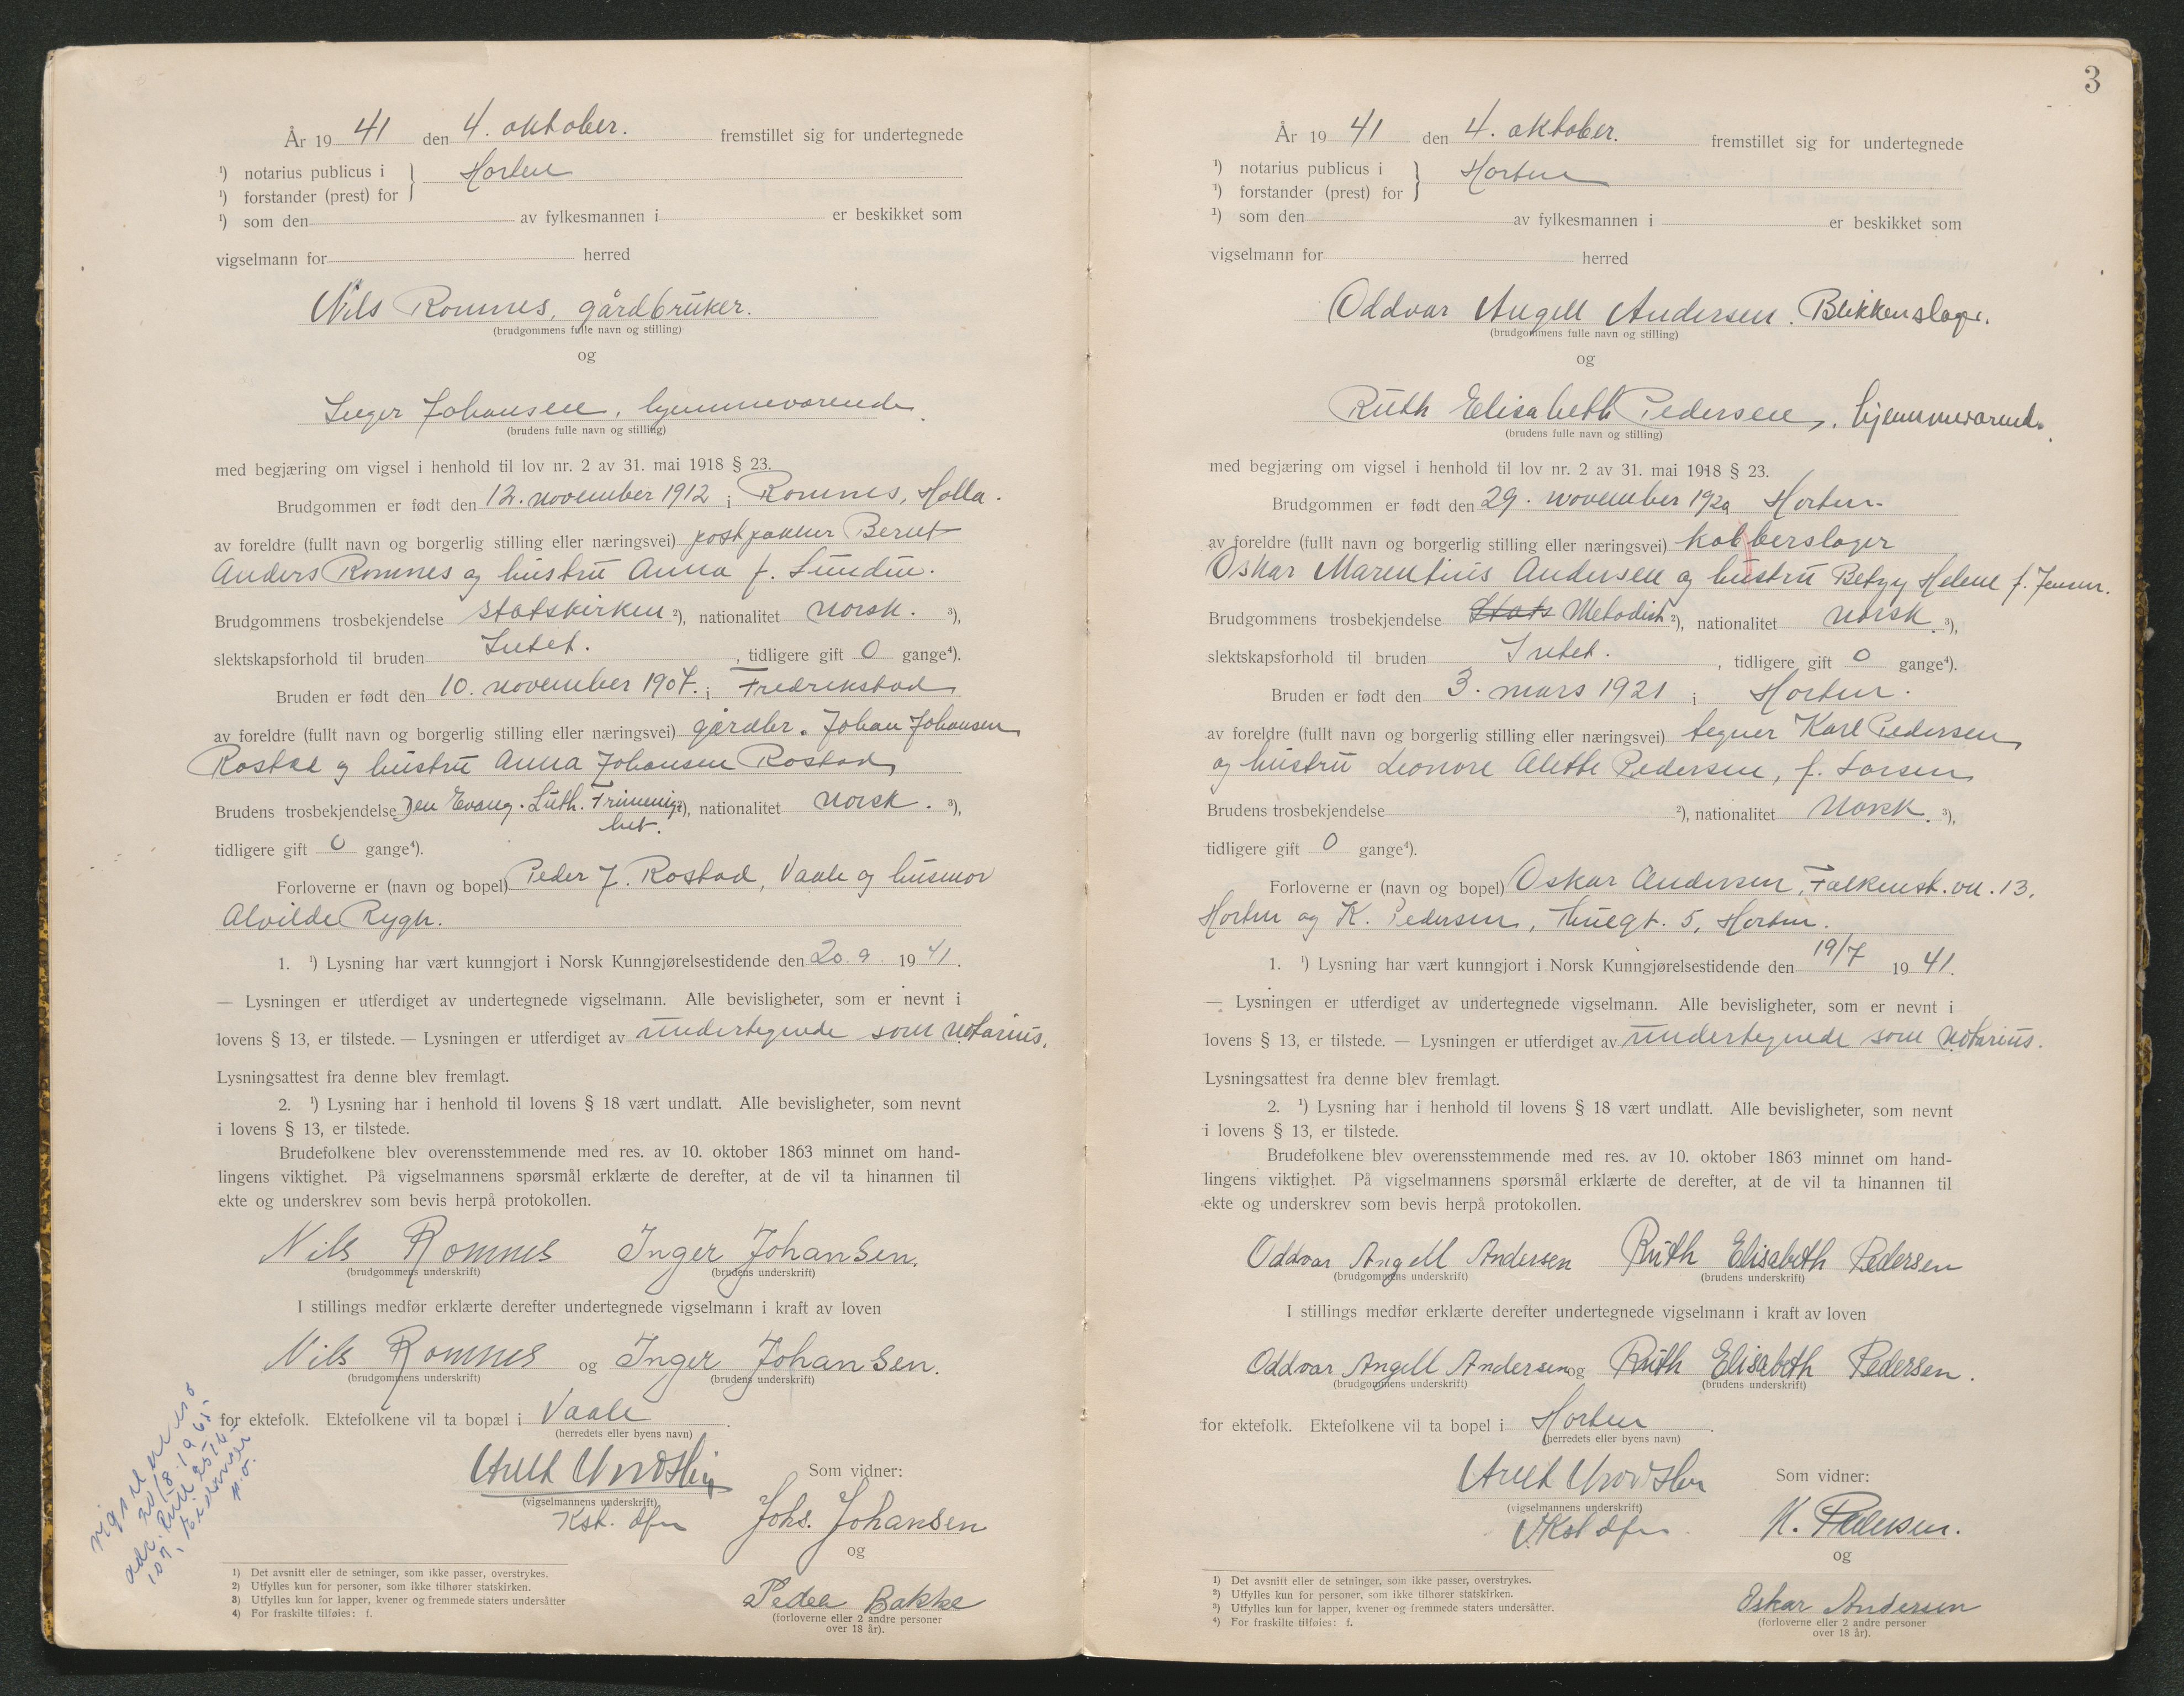 År 19 41 den 4. oktober. fremstillet sig for undertegnede
¹) notarius publicus i } Horten
¹) forstander (prest) for
¹) som den av fylkesmannen i er beskikket som
vigselmann for herred
Nils Romnes, gårdbruker.
(brudgommens fulle navn og stilling)
og
Inger Johansen, hjemmeværende.
(brudens fulle navn og stilling)
med begjæring om vigsel i henhold til lov nr. 2 av 31. mai 1918 § 23.
Brudgommen er født den 12. november 1912 i Romnes, Holla.
av foreldre (fullt navn og borgerlig stilling eller næringsvei) Bernt
Anders Romnes og hustru Anna f. Lunden.
Brudgommens trosbekjendelse statskirken ²), nationalitet norsk. ³),
slektskapsforhold til bruden Intet. , tidligere gift 0 gange⁴).
Bruden er født den 10. november 1907. i Fredrikstad
av foreldre (fullt navn og borgerlig stilling eller næringsvei) gårdbr. Johan Johansen
Rostad og hustru Anna Johansen Rostad
Brudens trosbekjendelse Den Evang. Luth. Frimenig- ²), nationalitet norsk. ³),
het.
tidligere gift 0 gange⁴).
Forloverne er (navn og bopel) Peder J. Rostad, Vaale og husmor
Alvilde Rygh.
1. ¹) Lysning har vært kunngjort i Norsk Kunngjørelsestidende den 20. 9. 19 41.
— Lysningen er utferdiget av undertegnede vigselmann. Alle bevisligheter, som er nevnt i
lovens § 13, er tilstede. — Lysningen er utferdiget av undertegnede som notarius.
Lysningsattest fra denne blev fremlagt.
2. ¹) Lysning har i henhold til lovens § 18 vært undlatt. Alle bevisligheter, som nevnt
i lovens § 13, er tilstede.
Brudefolkene blev overensstemmende med res. av 10. oktober 1863 minnet om hand-
lingens viktighet. På vigselmannens spørsmål erklærte de derefter, at de vil ta hinannen til
ekte og underskrev som bevis herpå protokollen.
Nils Romnes Inger Johansen.
(brudgommens underskrift) (brudens underskrift)
I stillings medfør erklærte derefter undertegnede vigselmann i kraft av loven
Nils Romnes og Inger Johansen.
(brudgommens underskrift) (brudens underskrift)
for ektefolk. Ektefolkene vil ta bopæl i Vaale.
(herredets eller byens navn)
Som vidner:
(vigselmannens underskrift)
Kst. dfm
Johs. Johansen
og
Peder Bakke
(forloverne eller 2 andre personer
over 18 år).
1) Det avsnitt eller de setninger, som ikke passer, overstrykes.
2) Utfylles kun for personer, som ikke tilhører statskirken.
3) Utfylles kun for lapper, kvener og fremmede staters undersåtter
4) For fraskilte tilføies: f.
3
År 19 41 den 4. oktober. fremstillet sig for undertegnede
¹) notarius publicus i } Horten
¹) forstander (prest) for
¹) som den av fylkesmannen i er beskikket som
vigselmann for herred
Oddvar Angell Andersen. Blikkenslager.
(brudgommens fulle navn og stilling)
og
Ruth Elisabeth Pedersen, hjemmeværende.
(brudens fulle navn og stilling)
med begjæring om vigsel i henhold til lov nr. 2 av 31. mai 1918 § 23.
Brudgommen er født den 29. november 1920 Horten.
av foreldre (fullt navn og borgerlig stilling eller næringsvei) kobberslager
Oskar Marentius Andersen og hustru Betzy Helene f. Jensen.
Brudgommens trosbekjendelse Stats Metodist ²), nationalitet norsk. ³),
slektskapsforhold til bruden Intet. , tidligere gift 0 gange⁴).
Bruden er født den 3. mars 1921 i Horten.
av foreldre (fullt navn og borgerlig stilling eller næringsvei) tegner Karl Pedersen
og hustru Leonore Alette Pedersen, f. Larsen
Brudens trosbekjendelse ²), nationalitet Norsk. ³),
tidligere gift 0 gange⁴).
Forloverne er (navn og bopel) Oskar Andersen, Falkenst.vn. 13,
Horten og K. Pedersen, Thuegt. 5, Horten.
1. ¹) Lysning har vært kunngjort i Norsk Kunngjørelsestidende den 19/7 19 41.
— Lysningen er utferdiget av undertegnede vigselmann. Alle bevisligheter, som er nevnt i
lovens § 13, er tilstede. — Lysningen er utferdiget av undertegnede som notarius.
Lysningsattest fra denne blev fremlagt.
2. ¹) Lysning har i henhold til lovens § 18 vært undlatt. Alle bevisligheter, som nevnt
i lovens § 13, er tilstede.
Brudefolkene blev overensstemmende med res. av 10. oktober 1863 minnet om hand-
lingens viktighet. På vigselmannens spørsmål erklærte de derefter, at de vil ta hinannen til
ekte og underskrev som bevis herpå protokollen.
Oddvar Angell Andersen Ruth Elisabeth Pedersen
(brudgommens underskrift) (brudens underskrift)
I stillings medfør erklærte derefter undertegnede vigselmann i kraft av loven
Oddvar Angell Andersen og Ruth Elisabeth Pedersen.
(brudgommens underskrift) (brudens underskrift)
for ektefolk. Ektefolkene vil ta bopel i Horten.
(herredets eller byens navn)
Som vidner:
(vigselmannens underskrift)
Kst dfm.
K. Pedersen.
og
Oskar Andersen
(forloverne eller 2 andre personer
over 18 år).
1) Det avsnitt eller de setninger, som ikke passer, overstrykes.
2) Utfylles kun for personer, som ikke tilhører statskirken.
3) Utfylles kun for lapper, kvener og fremmede staters undersåtter.
4) For fraskilte tilføies: f.